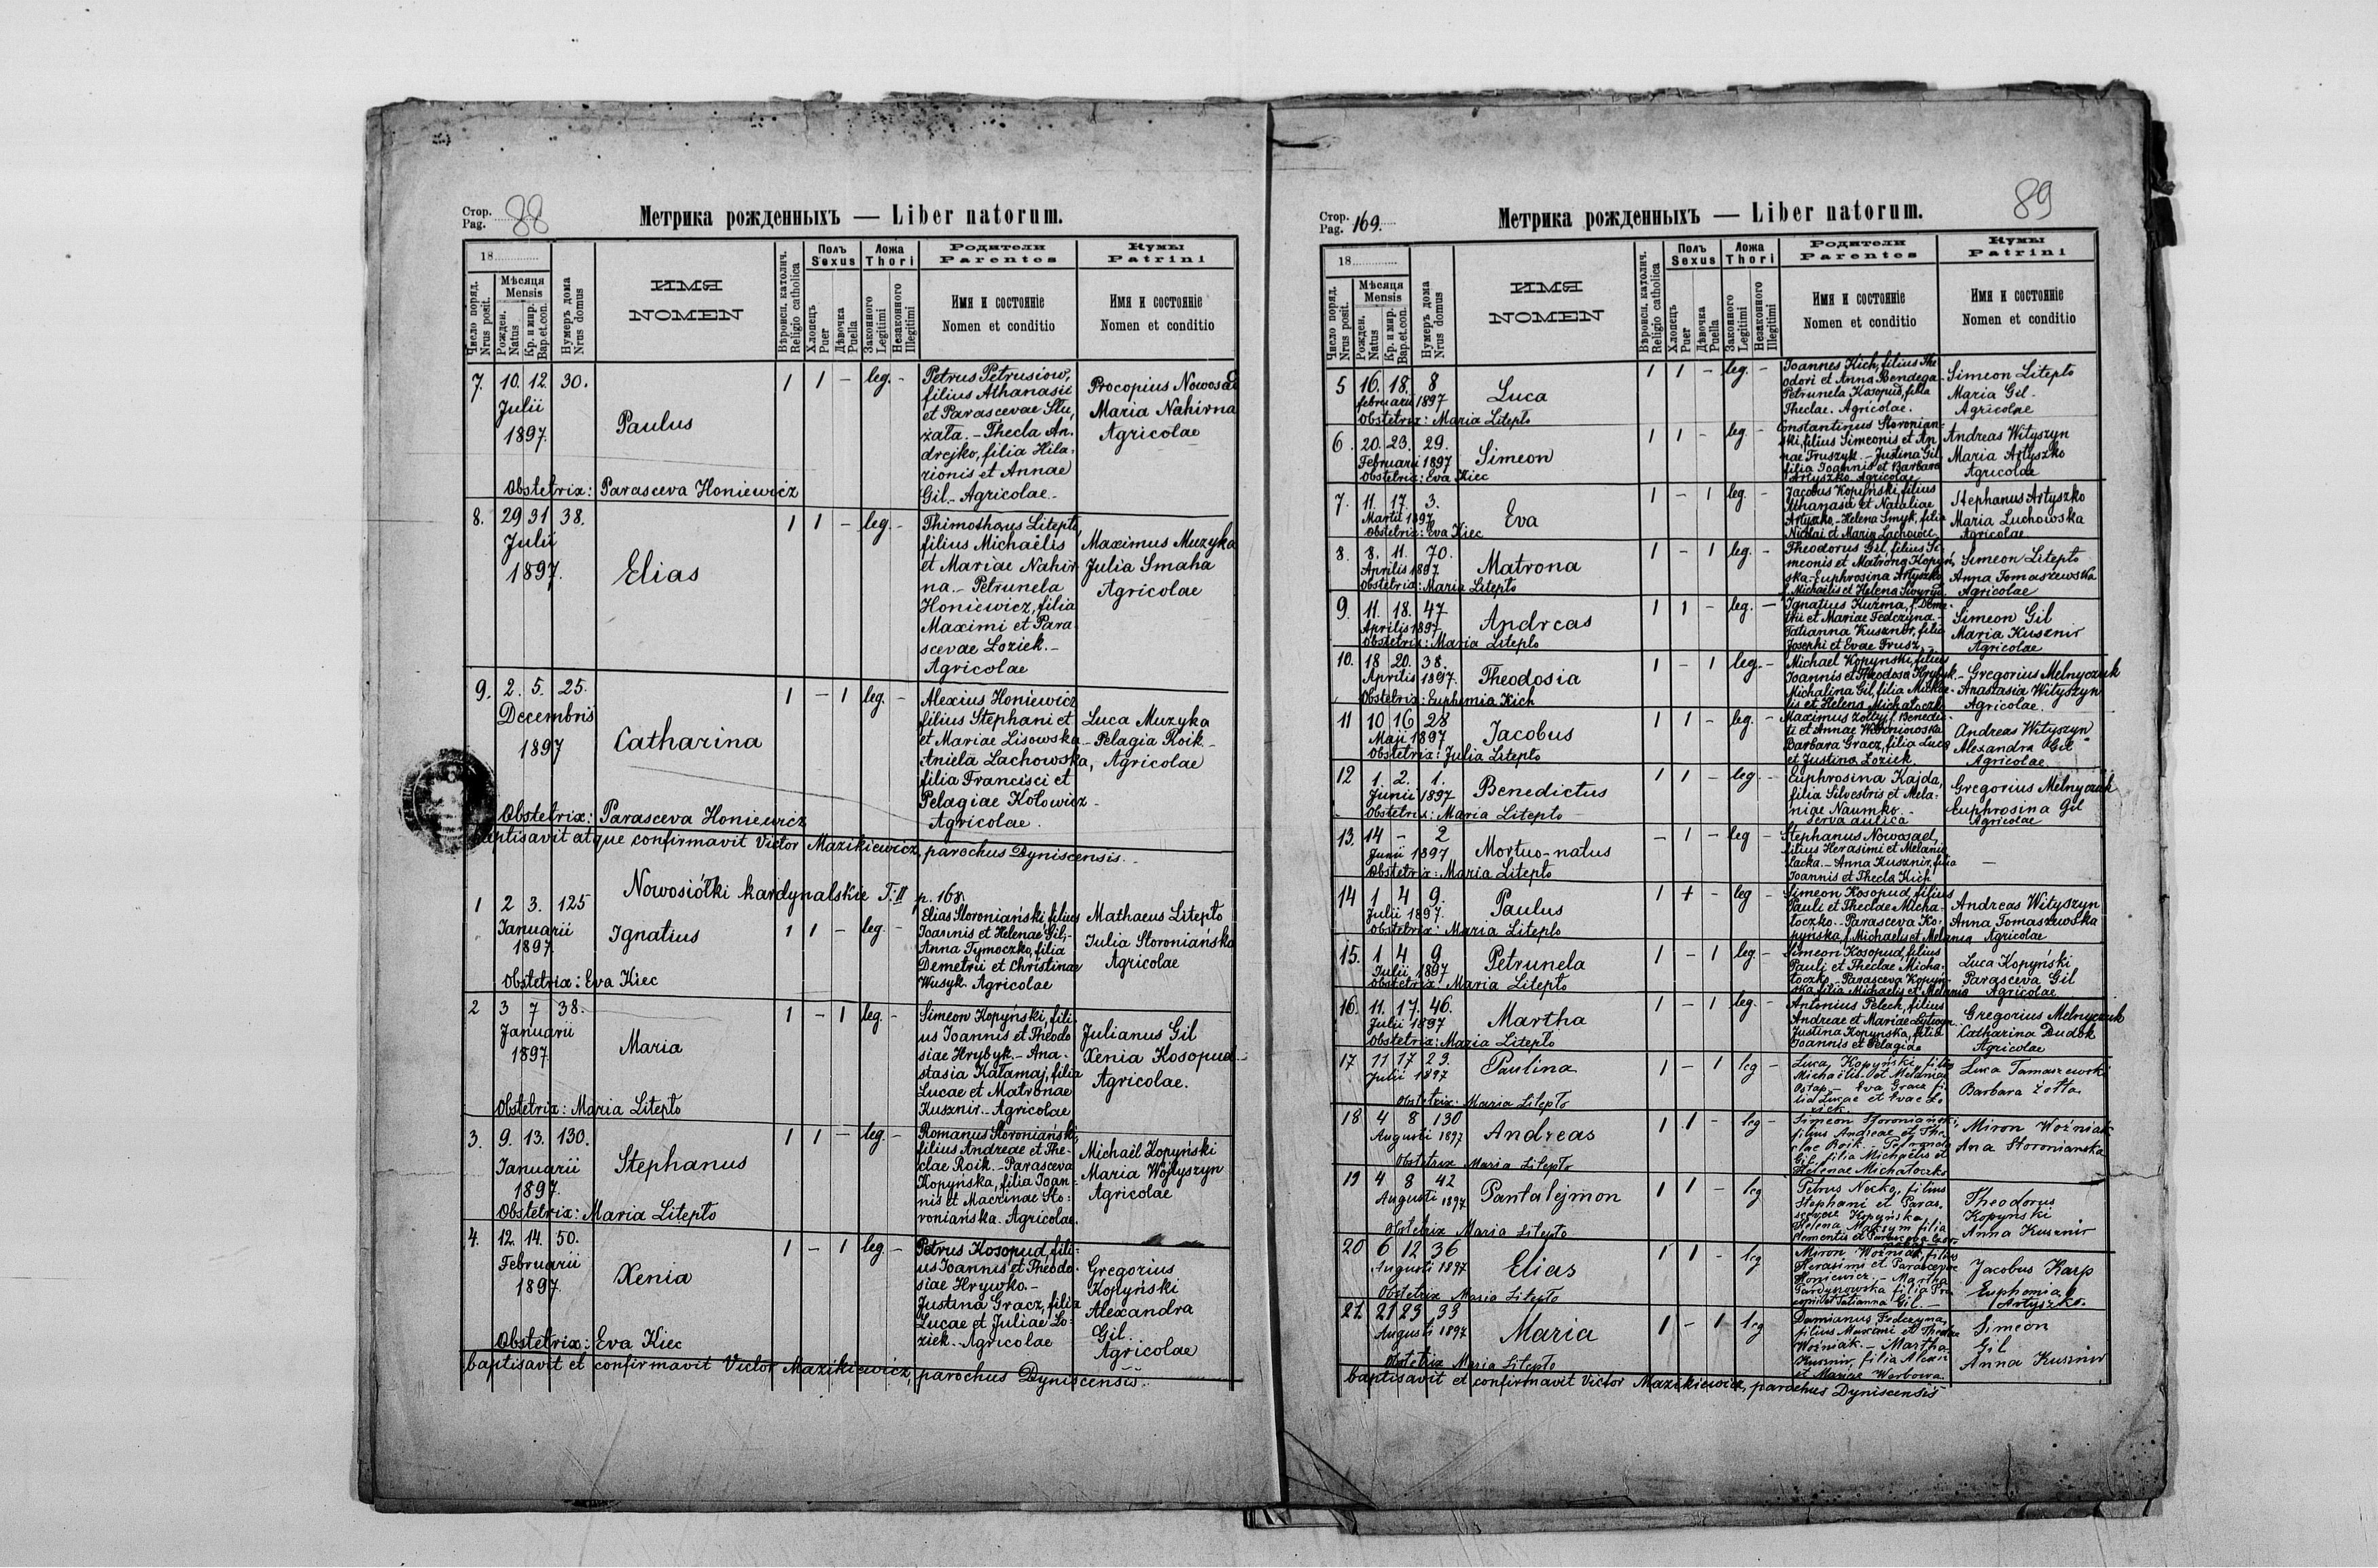 Стор.
Pag. 88
Метрика рожденныхъ — Liber natorum.
18
Число поряд.
Nrus posit.
Мѣсяця
Mensis
Рожден.
Natus
Кр. и мир.
Bap.et.con.
Нумеръ дома
Nrus domus
ИМЯ
NOMEN
Вѣроисп. католич.
Religio catholica
Полъ
Sexus
Хлопецъ
Puer
Дѣвочка
Puella
Ложа
Thori
Законного
Legitimi
Незаконного
Illegitimi
Родители
Parentes
Имя и состояніе
Nomen et conditio
Кумы
Patrini
Имя и состояніе
Nomen et conditio
7. 10. 12. 30.
Julii
1897.
Paulus
1 1 - leg. -
Petrus Petrusiow,
filius Athanasii
et Parascevae Slu,
zata. - Thecla An.
drejko, filia Hila,
rionis et Annae
Gil - Agricolae -
Procopius Nowosad
Maria Nahirna
Agricolae
Obstetrix: Parasceva Honiewicz
8. 29 31 38.
Julii
1897.
Elias
1 1 - leg. -
Litepto
filius Michaëlis
et Mariae Nahir
na. - Petrunela
Honiewicz, filia
Maximi et Para
scevae Loziek. -
Agricolae
Maximus Muzyka
Julia Smaha
Agricolae
9. 2. 5. 25.
Decembris
1897
Catharina
1 - 1 leg. -
Alexius Honiewicz
filius Stephani et
et Mariae Lisowska -
Aniela Lachowska,
filia Francisci et
Pelagiae Kotowicz -
Agricolae.
Luca Muzyka
Pelagia Roik -
Agricolae
Obstetrix: Parasceva Honiewicz
baptisavit atque confirmavit Victor Mazikiewicz, parochus Dyniscensis. -
Nowosiółki kardynalskie T. II p. 168.
1 2 3. 125
Januarii
1897.
Ignatius
1 1 - leg. -
Elias Storoniański filius
Joannis et Helenae Gil, -
Anna Tymoczko, filia
Demetrii et Christinae
Wusyk. Agricolae
Mathaeus Litepto
Julia Storoniańska
Agricolae
Obstetrix: Eva Kiec
2 3 7 38.
Januarii
1897
Maria
1 - 1 leg. -
Simeon Kopyński, fili-
us Joannis et Theodo
siae Hrybyk. - Ana -
stasia Katamaj, filia
Lucae et Matronae
Kusznir - Agricolae
Julianus Gil
Xenia Kosopud -
Agricolae.
Obstetrix: Maria Litepto
3. 9. 13. 130.
Januarii
1897.
Stephanus
1 1 - leg. -
Romanus Storoniański,
filius Andreae et The-
clae Roik. - Parasceva
Kopyńska, filia Joan-
nis et Macrinae Sto:
roniańska. Agricolae.
Michaël Kopyński
Maria Wojtyszyn
Agricolae
Obstetrix: Maria Litepto
4. 12. 14. 50.
Februarii
1897.
Xenia
1 - 1 leg -
Petrus Kosopud, fili-
us Joannis et Theodo-
siae Hrywko. -
Justina Gracz, filia
Lucae et Juliae Lo-
ziek. - Agricolae
Gregorius
Kopyński
Alexandra
Gil.
Agricolae
Obstetrix: Eva Kiec
baptisavit et confirmavit Victor Mazikiewicz, parochus Dyniscensis.
Стор.
Pag. 169.
Метрика рожденныхъ — Liber natorum.
89
18
Число поряд.
Nrus posit.
Мѣсяця
Mensis
Рожден.
Natus
Кр. и мир.
Bap.et.con.
Нумеръ дома
Nrus domus
ИМЯ
NOMEN
Вѣроисп. католич.
Religio catholica
Полъ
Sexus
Хлопецъ
Puer
Дѣвочка
Puella
Ложа
Thori
Законного
Legitimi
Незаконного
Illegitimi
Родители
Parentes
Имя и состояніе
Nomen et conditio
Кумы
Patrini
Имя и состояніе
Nomen et conditio
5 16. 18. 8
februarii 1897
Luca
1 1 - leg. -
Joannes Kich, filius The
odori et Anna Bendega -
Petrunela Kosopud, filia
Theclae. Agricolae.
Simeon Litepto
Maria Gil -
Agricolae
Obstetrix: Maria Litepto
6. 20. 23. 29.
Februarii 1897
Simeon
1 1 - leg. -
Constantinus Storonian-
ski, filius Simeonis et An
nae Fruszyk. - Justina Gil
filia Joannis et Barbara
Artyszko Agricolae
Andreas Wityszyn
Maria Artyszko
Agricolae
Obstetrix: Eva Kiec
7. 11. 17. 3.
Martii 1897
Eva
1 - 1 leg. -
Jacobus Kopyński, filius
Athanasii et Nataliae
Artyszko, - Helena Smyk, filia
Nicolai et Maria
Stephanus Artyszko
Maria Luchowska
Agricolae
Obstetrix: Eva Kiec
8. 8. 11. 70.
Aprilis 1897
Matrona
1 - 1 leg. -
Theodorus Gil, filius Si-
meonis et Matrona Kopyń
ska - Euphrosina Artyszko
f. Michaelis et Helena
Simeon Litepto
Anna Tomaszewska
Agricolae
Obstetrix: Maria Litepto
9. 11. 18. 47
Aprilis 1897
Andreas
1 1 - leg. -
Ignatius Kuzma, f. Deme-
thi et Mariae Fedczyna -
Tatianna Kusznir, filia
Josephi et Evae Frusz -
Simeon Gil
Maria Kusznir
Agricolae
Obstetrix: Maria Litepto
10. 18 20. 38.
Aprilis 1897.
Theodosia
1 - 1 leg. -
Michael Kopyński, filius
Joannis et Theodosa Hrybyk -
Michalina Gil, filia Michae -
lis et Helena Michatoczko
Gregorius Melnyczuk
Anastasia Wityszyn
Agricolae.
Obstetrix: Euphemia Kich
11 10 16 28
Maji 1897
Jacobus
1 1 - leg. -
Maximus Zottyj, f. Benedic-
ti et Annae
Barbara Gracz, filia Luca
et Justina Loziek
Andreas Wityszyn
Alexandra Gil
Agricolae
Obstetrix: Julia Litepto
12 1. 2. 1.
Junii 1897
Benedictus
1 1 - leg. -
Euphrosina Kajda,
filia Silvestris et Mela-
niae Naumko. -
serva aulica
Gregorius Melnyczuk
Euphrosina Gil
Agricolae
Obstetrix: Maria Litepto
13. 14 - 2
Junii 1897
Mortuo-natus
- 1 - leg -
Stephanus Nowosad,
filius Herasimi et Melania
Lacka. - Anna Kusznir, filia
Joannis et Thecla Kich
-
Obstetrix: Maria Litepto
14 1 4 9.
Julii 1897.
Paulus
1 1 - leg -
Simeon Kosopud, filius
Pauli et Theclae Micha-
toczko. - Parasceva Ko-
pyńska, f. Michaelis et Melania
Andreas Wityszyn
Anna Tomaszewska
Agricolae
Obstetrix: Maria Litepto
15. 1 4 9
Julii 1897
Petrunela
1 - 1 leg -
Simeon Kosopud, filius
Pauli et Theclae Micha-
toczko. - Parasceva Kopyń-
ska, filia Michaelis et Melania
Luca Kopyński
Parasceva Gil
Agricolae
Obstetrix: Maria Litepto
16. 11. 17. 46.
Julii 1897
Martha
1 - 1 leg. -
Antonius Pelech, filius
Andreae et Mariae
Justina Kopyńska, filia
Joannis et Pelagiae
Gregorius Melnyczuk
Catharina Dudok
Agricolae
Obstetrix: Maria Litepto
17 11 17 29.
Julii 1897
Paulina
1 - 1 leg -
Luca Kopyński, filius
Michaelis et Melaniae
Ostap - Eva Gracz fi-
lia Lucae et Evae Lo
ziek.
Luca Tomaszewski
Barbara Żotta
Obstetrix: Maria Litepto
18 4 8 130
Augusti 1897
Andreas
1 1 - leg -
Simeon Storoniański,
filius Andreae et The-
clae Roik. - Petronela
Gil, filia Michaelis et
Helenae Michatoczko
Miron Woźniak
Ana Storonianska
Obstetrix Maria Litepto
19 4 8 42
Augusti 1897
Pantalejmon
1 1 - leg
Petrus Necko, filius
Stephani et Paras-
sevae Kopyńska
Helena Maksym filia
Clementis et
Theodorus
Kopynski
Anna Kusznir
Obstetrix Maria Litepto
20 6 12 36
Augusti 1897
Elias
1 1 - leg
Miron Woźniak, filius
Herasimi et Parascevae
Honiewicz. - Martha
filia Pro
copii et Tatianna Gil. -
Jacobus Karp
Euphemia
Artyszko.
Obstetrix Maria Litepto
21. 21 23 33
Augusti 1897
Maria
1 - 1 leg
Damianus Fedczyna,
filius Maximi et Theclae
Woźniak. - Martha
Kusznir, filia Alexii
et Mariae Werbowa
Simeon
Gil
Anna Kusznir
Obstetrix Maria Litepto
baptisavit et confirmavit Victor Mazikiewicz, parochus Dyniscensis